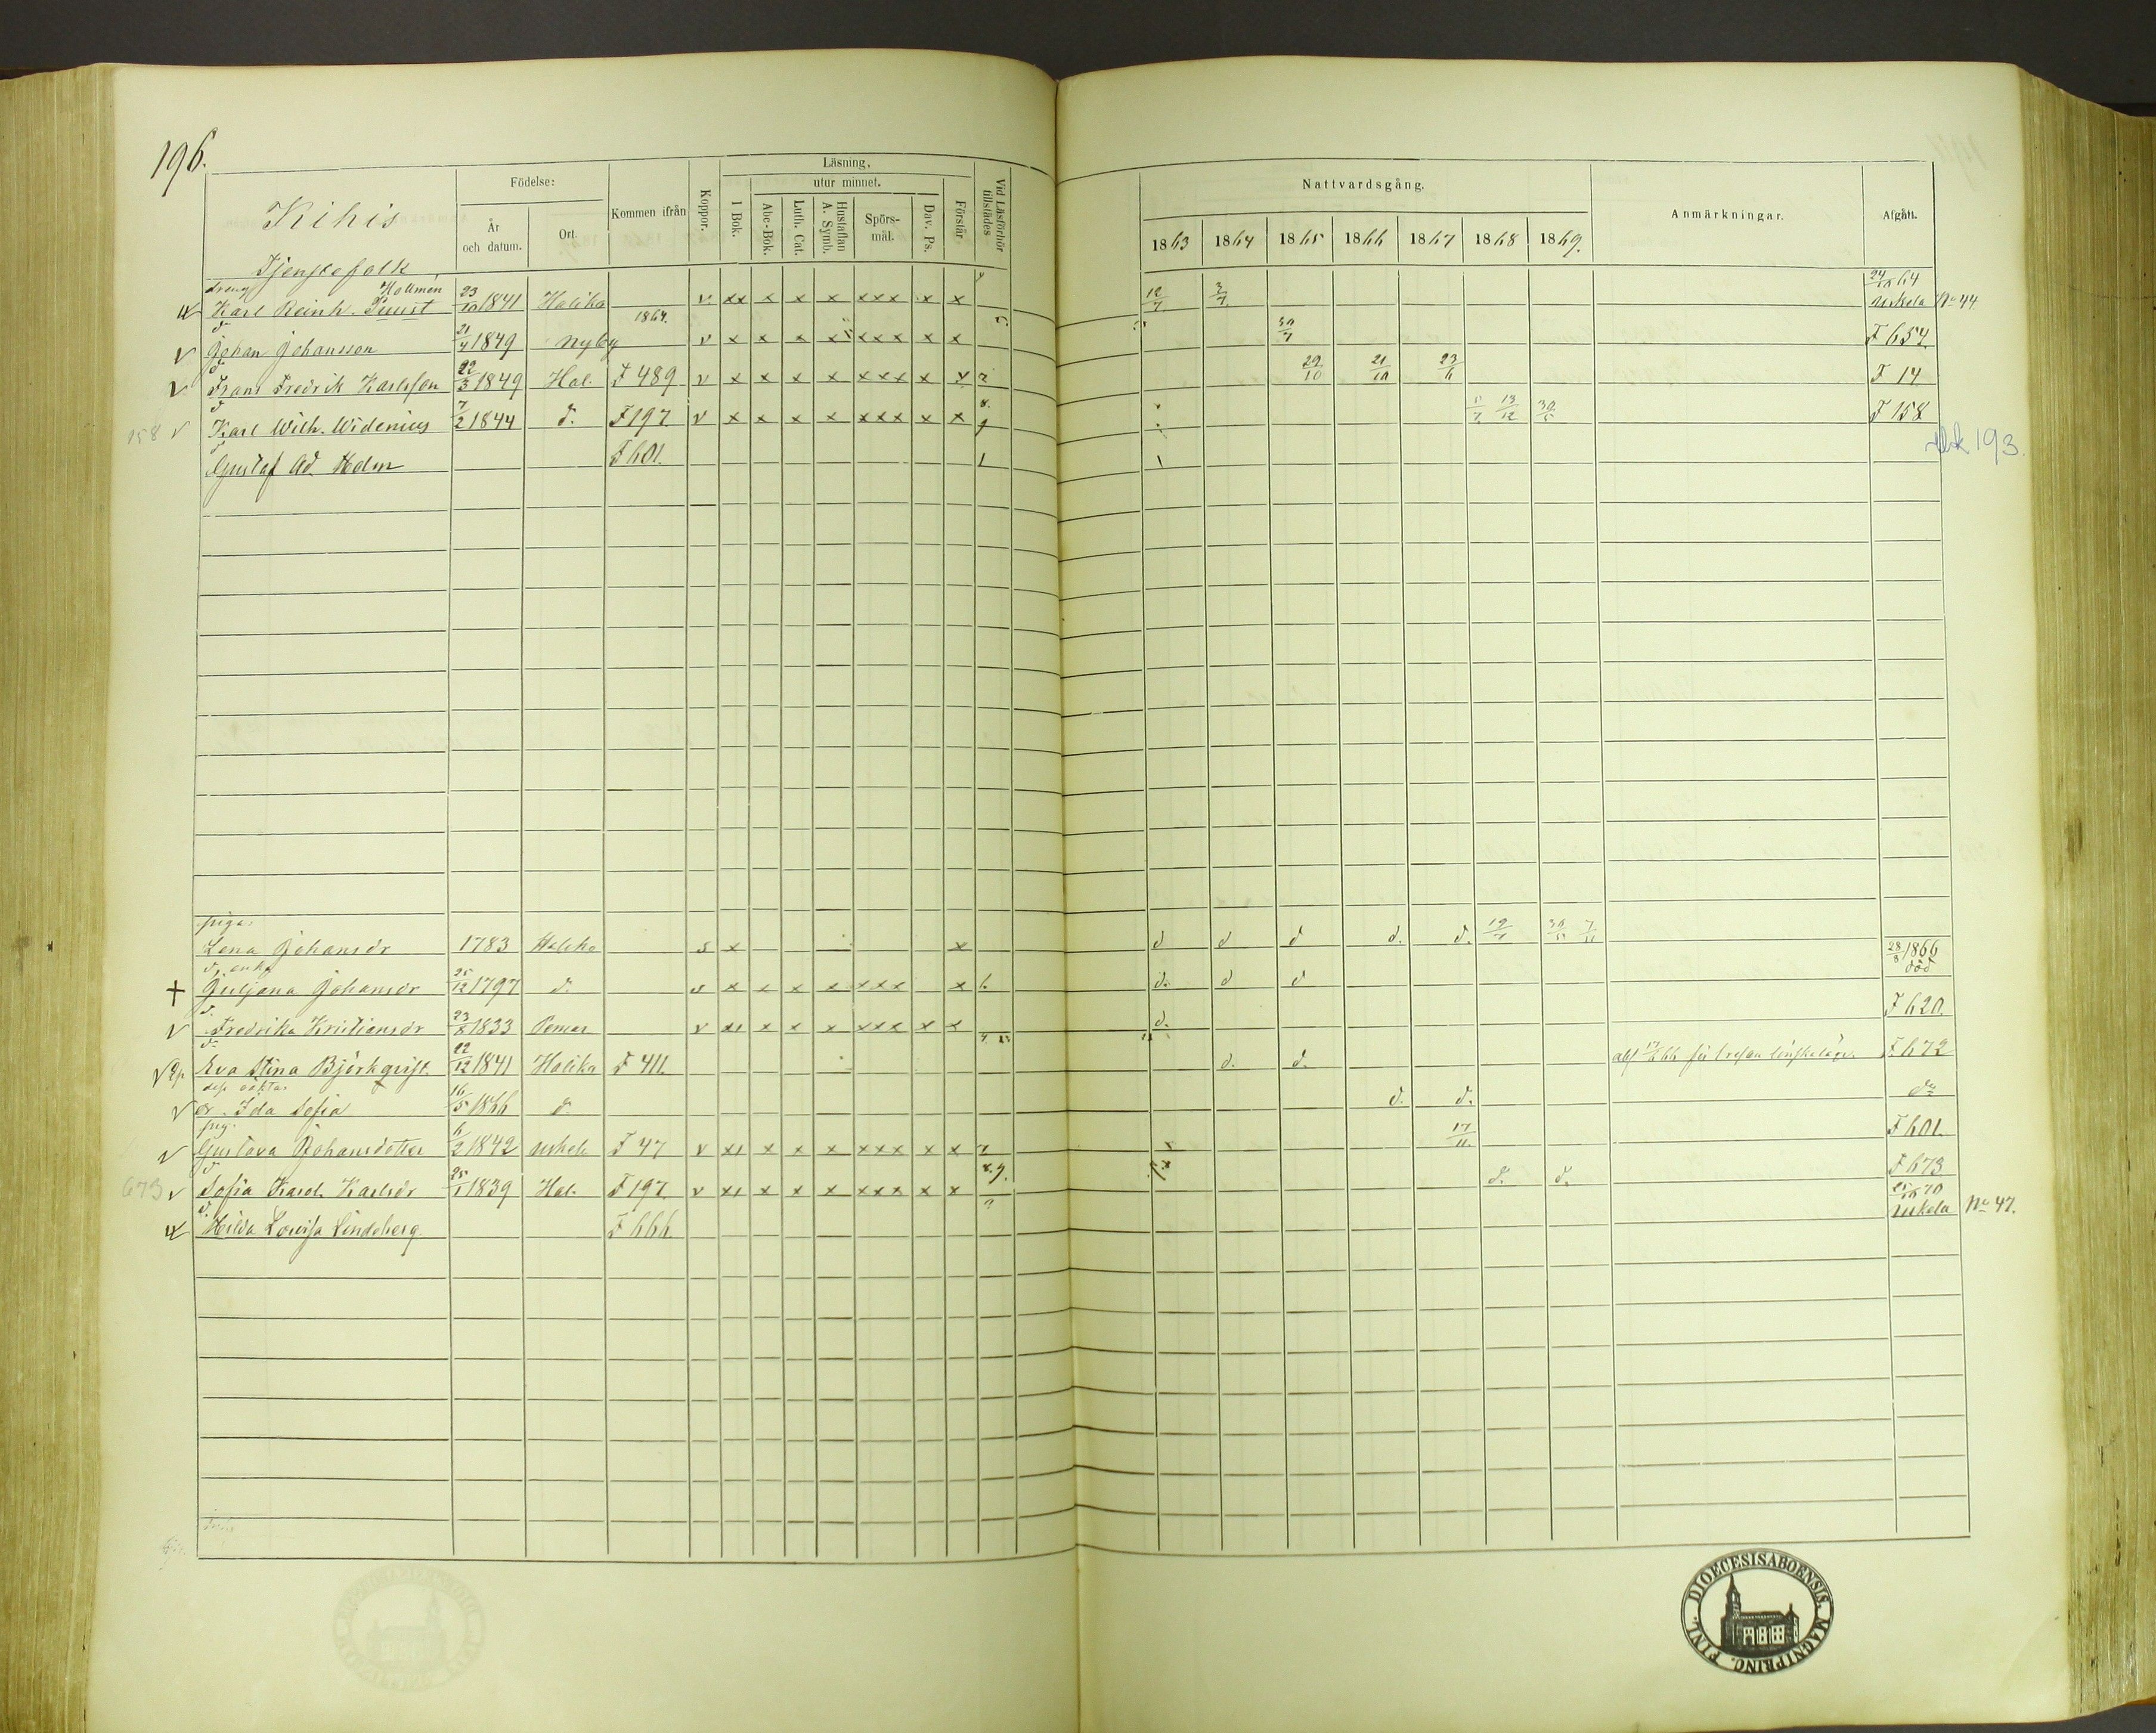 196.
Läsning,
Födelse:
utur minnet.
Kihis
År och datum.
Ort.
Kommen ifrån
Koppor.
I Bok.
Abc-Bok.
Luth. Cat.
Hustaflan A. Symb.
Spörsmål.
Dav. Ps.
Förstår
Vid Läsförhör tillstädes
Nattvardsgång.
1863 1864 1865 1866 1867 1868 1869.
Anmärkningar.
Afgått.
Tjenstefolk
dreng Hollmén 24/10 64
Karl Reinh. Puust 23/10 1841 Haliko v xx x x x xxx x x 12/7 3/7 Uskela No 44
1864.
d:o
Johan Johansson 21/4 1849 Nyby v x x x x xxx x x 30/7 F 654
d
Frans Fredrik Karlsson 22/3 1849 Hal. F 489 v x x x x xxx x x 7 29/10 21/10 23/6 F 14
d
158 v Karl Wilh. Widenius 7/2 1844 d. F 197 v x x x x xxx x x 8. 13/12 30/5 F 158
Rbk 193.
d
Gustaf Ad. Holm F 601.
piga:
Lena Johansdr 1783 Haliko s x x d d d d. d. 12/7
d, enka 28/8 1866
+ Juljana Johansdr 25/12 1797 d. s x x x x xxx x 6. d. d d död
d.
v Fredrika Kristiansdr 23/8 1833 Pemar v xx x x x xxx x x d. F 620.
d:o
Eva Stina Björkqvist 22/12 1841 Haliko F 411. d. d. F 672
dess dotter
v oä. Ida Sofia 16/5 1866 d. d. d. do
pig.
v Gustava Johansdotter 6/2 1842 Uskela F 47 v xx x x x xxx x x 7 17/11 F 601.
d
673 v Sofia Karol. Karlsdr 25/1 1839 Hal. F 197 v xx x x x xxx x x 8.9. d. d. F 673
d. 25/10 70
Hilda Lovisa Lindeberg F 666. Uskela No 47.
DIOECESIS ABOENSIS. MAGNI PRINC. FINL.